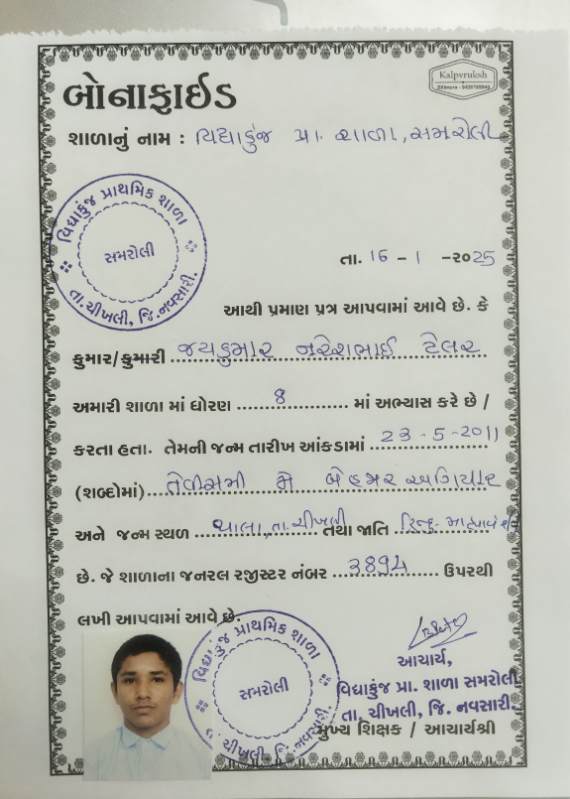 Kalpvruksh
બોનાફાઈડ
શાળાનું નામ : વિદ્યાકુંજ પ્રા. શાળા, સમરોલી
વિદ્યાકુંજ પ્રાથમિક શાળા
સમરોલી
તા. ચીખલી, જિ. નવસારી.
તા. 16 - 1 -૨૦25
આથી પ્રમાણ પત્ર આપવામાં આવે છે. કે
કુમાર/કુમારી જયકુમાર નરેશભાઈ ટેલર
અમારી શાળા માં ધોરણ 8 માં અભ્યાસ કરે છે /
કરતા હતા. તેમની જન્મ તારીખ આંકડામાં 23-5-2011
(શબ્દોમાં) તેવીસમી મે બેહજાર અગિયાર
અને જન્મ સ્થળ તા. ચીખલી તથા જાતિ હિન્દુ
છે. જે શાળાના જનરલ રજીસ્ટર નંબર 3894 ઉપરથી
લખી આપવામાં આવે છે.
વિદ્યાકુંજ પ્રાથમિક શાળા
સમરોલી
તા. ચીખલી, જિ. નવસારી.
આચાર્ય,
વિદ્યાકુંજ પ્રા. શાળા સમરોલી
તા. ચીખલી, જિ. નવસારી.
મુખ્ય શિક્ષક / આચાર્યશ્રી